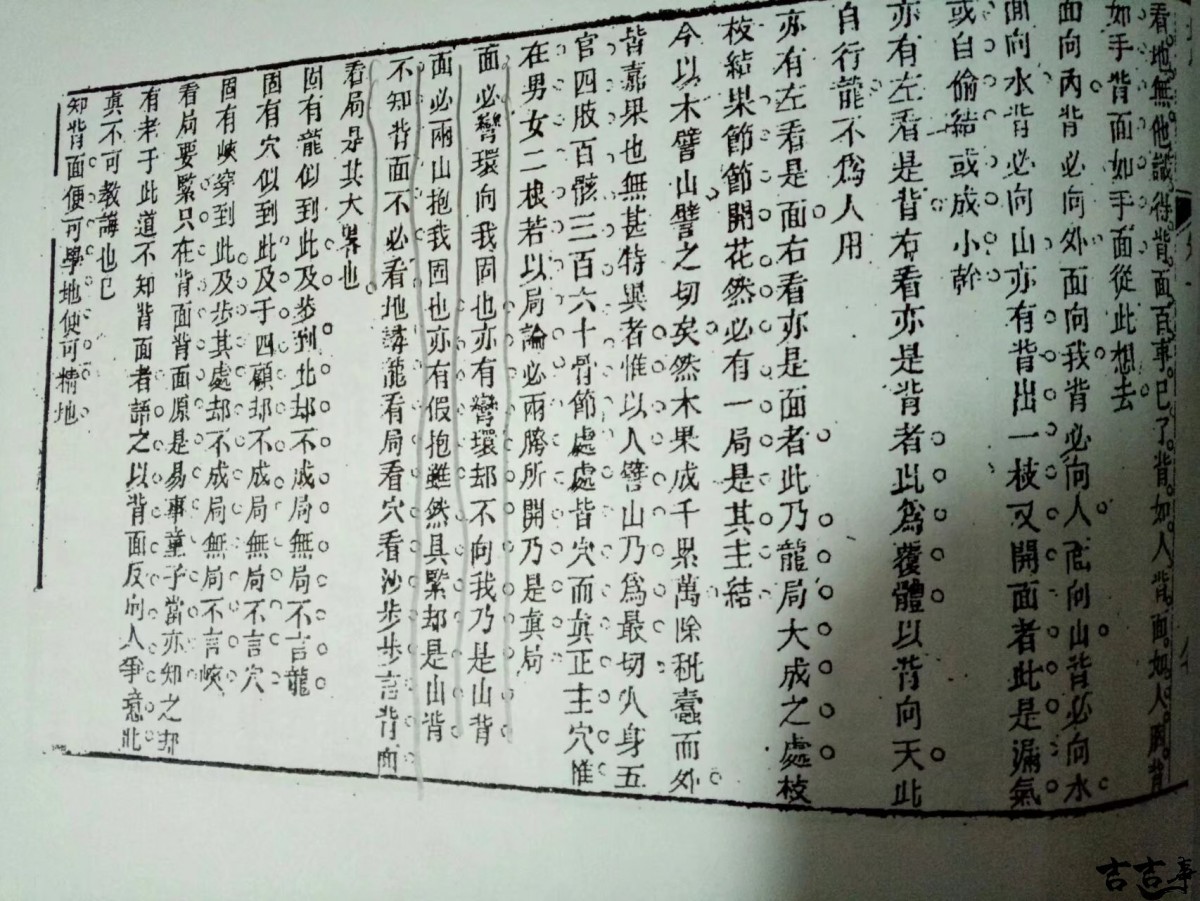 看地無他訣得背面百事已了背如人背面如人胸背
如手背面如手面從此想去
面向內背必向外面向我背必向人面向山背必向水
面向水背必向山亦有背出一枝又開面者此是漏氣
或自偷結或成小幹
亦有左看是背右看亦是背者此爲覆體以背向天此
自行龍不爲人用
亦有左看是面右看亦是面者此乃龍局大成之處枝
枝結果節節開花然必有一局是其主結
今以木譬山譬之切矣然木果成千累萬除秕蠹而外
皆嘉果也無甚特異者惟以人譬山乃爲最切人身五
官四肢百骸三百六十骨節處處皆穴而眞正主穴惟
在男女二根若以局論必兩胯所開乃是眞局
面必彎環向我固也亦有彎環却不向我乃是山背
面必兩山抱我固也亦有假抱雖然具緊却是山背
不知背面不必看地講龍看局看穴看沙步步言背面
看局是其大畧也
固有龍似到此及葬到此却不成局無局不言龍
固有穴似到此及于四顧却不成局無局不言穴
固有峽穿到此及步其處却不成局無局不言峽
看局要緊只在背面背面原是易事童子當亦知之却
有老于此道不知背面者語之以背面反向人爭意此
眞不可教誨也已
知背面便可學地便可精地
吉吉